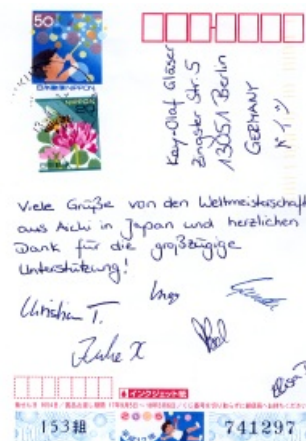 50
日本郵便 NIPPON
NIPPON
Kay-Olaf Gläser
Zingster Str. 5
13051 Berlin
GERMANY
ドイツ
Viele Grüße von den Weltmeisterschaft
aus Aichi in Japan und herzlichen
Dank für die großzügige
Unterstützung!
Christian T.
Julie X
インクジェット紙
153組
741297